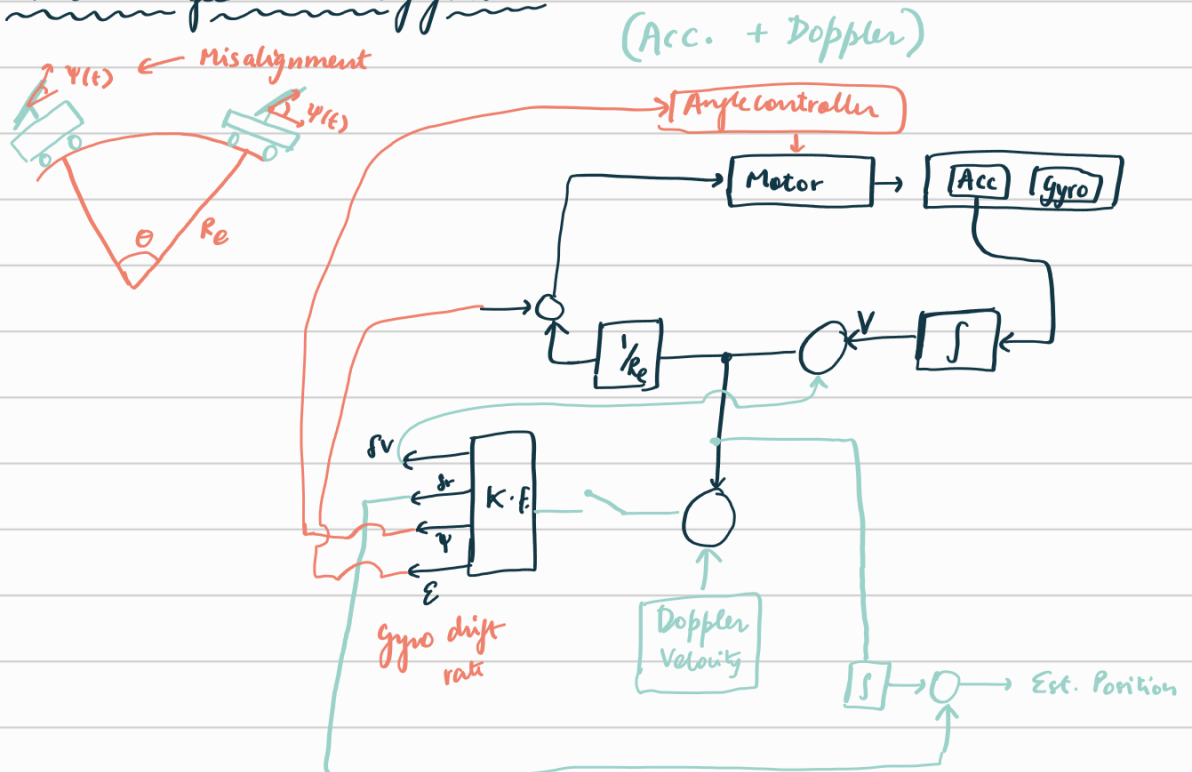 (Acc. + Doppler)
Misalignment
Ψ(t)
Ψ(t)
θ
Re
Angle controller
Motor
Acc
Gyro
V
∫
1/Re
δV
δr
Ψ
ε
K.F.
Gyro drift
rate
Doppler
Velocity
∫
Est. Position